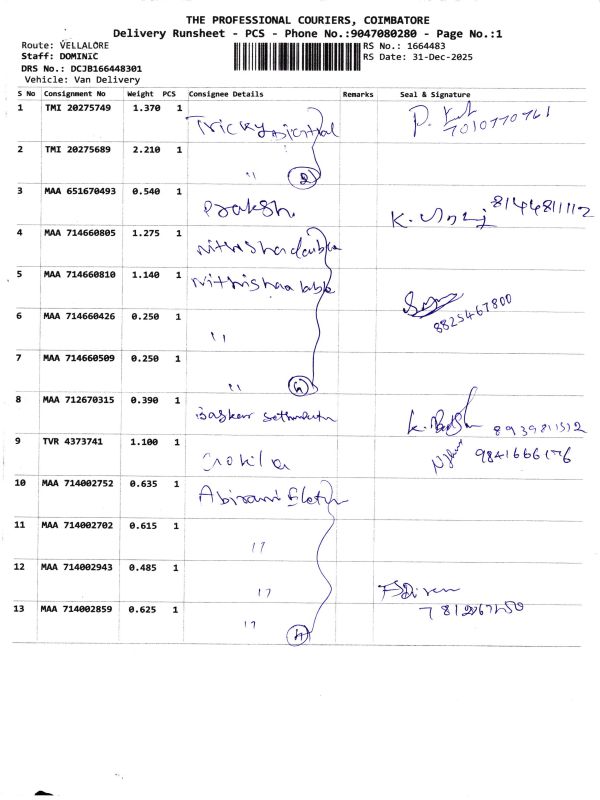 THE PROFESSIONAL COURIERS, COIMBATORE
Delivery Runsheet - PCS - Phone No.:9047080280 - Page No.:1
Route: VELLALORE
RS No.: 1664483
Staff: DOMINIC
RS Date: 31-Dec-2025
DRS No.: DCJB166448301
Vehicle: Van Delivery
S No Consignment No Weight PCS Consignee Details Remarks Seal & Signature
1 TMI 20275749 1.370 1 Tricky P.
7010770761
2 TMI 20275689 2.210 1 " 2
3 MAA 651670493 0.540 1 Prakash K. 8144811112
4 MAA 714660805 1.275 1
5 MAA 714660810 1.140 1
8825467800
6 MAA 714660426 0.250 1 "
7 MAA 714660509 0.250 1 "
8 MAA 712670315 0.390 1 Baskar K. 8939811512
9 TVR 4373741 1.100 1 Gokila 9841666176
10 MAA 714002752 0.635 1 Abirami
11 MAA 714002702 0.615 1 "
12 MAA 714002943 0.485 1 "
13 MAA 714002859 0.625 1 " 4